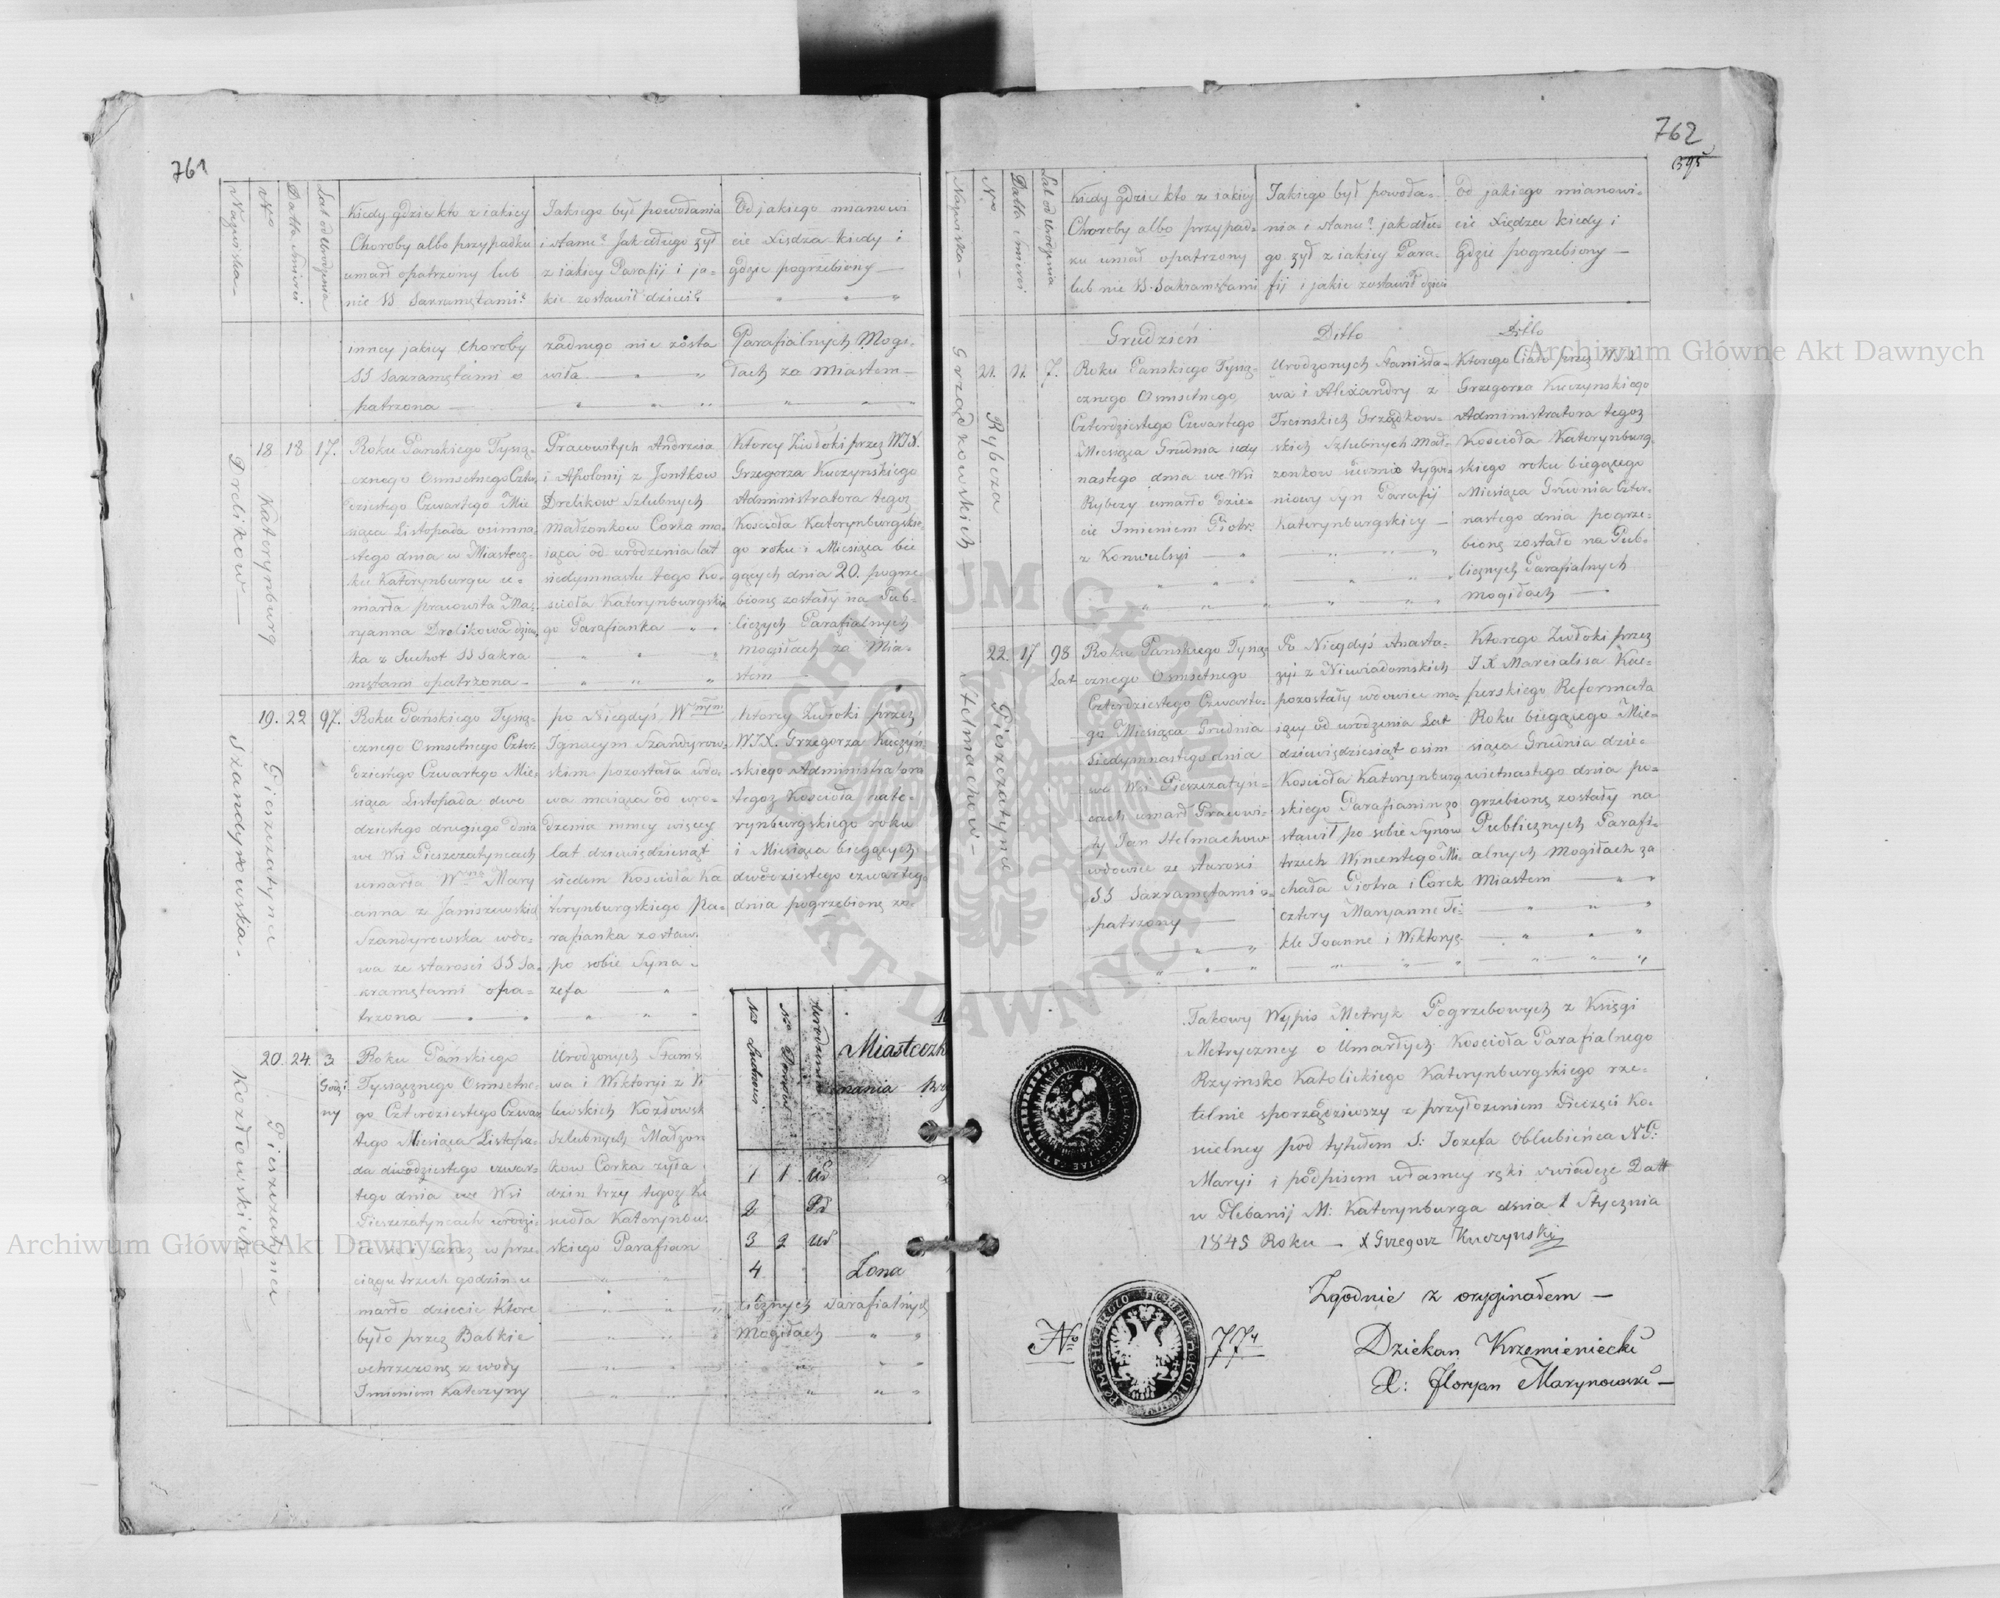 761
Nazwiska
No
Datta Smierci
Lat od Urodzenia
Kiedy gdzie kto z iakiey
Choroby albo przypadku
umarł opatrzony lub
nie SS Sakramętami?
Jakiego był powołania
i stanu? Jak długo żył
z iakiey Parafij i ja-
kie zostawił dzieci?
Od jakiego mianowi
cie Xiędza kiedy i
gdzie pogrzebiony —
inney jakiey choroby
SS Sakramętami o
patrzona —
żadnego nie zosta
wiła
Parafialnych Mogi-
łach za Miastem —
Drelikow —
18
Katerynburg
18
17.
Roku Panskiego Tysią-
cznego Osmsetnego Czter
dziestego Czwartego Mie
siąca Listopada osimna-
stego dnia w Miastecz-
ku Katerynburgu u-
marła pracowita Ma-
ryanna Drelikowa dziew-
ka z Suchot SS Sakra
mętami opatrzona —
Pracowitych Andrzeia
i Apolonij z Jontkow
Drelikow Szlubnych
Małżonkow Corka ma-
iąca od urodzenia lat
siedymnaście tego Ko-
scioła Katerynburgskie
go Parafianka
Ktorey Zwłoki przez WJX.
Grzegorza Kuczynskiego
Administratora tegoż
Kościoła Katerynburgskie-
go roku i Miesiąca bie
gących dnia 20. pogrze
bione zostały na Pub-
licznych Parafialnych
mogiłach za Mia-
stem
Szandyrowska -
19.
Pieszczatyńce
22
97.
Roku Pańskiego Tysią-
cznego Osmsetnego Czter-
dziestego Czwartego Mie-
siąca Listopada dwu
dziestego drugiego dnia
we Wsi Pieszczatyncach
umarła Wna Mary
anna z Janiszewskich
Szandyrowska wdo-
wa ze starosci SS Sa-
kramętami opa-
trzona
po Niegdyś Wnym
Ignacym Szandyrow-
skim pozostała wdo-
wa maiąca od uro-
dzenia mniey więcey
lat dziewiędziesiąt
siedem Kosciola Ka
terynburgskiego Pa-
rafianka zostaw
po sobie Syna
zefa
Ktorey Zwłoki przez
WJX. Grzegorza Kuczyń
skiego Administratora
tegoż Kościoła Kate-
rynburgskiego roku
i Miesiąca biegących
dwódziestego czwartego
dnia pogrzebione zo-
Kozłowskich —
20.
Pieszczatyńce
24.
3
Godzi
ny
Roku Pańskiego
Tysiącznego Osmsetne-
go Czterdziestego Czwar
tego Miesiąca Listopa-
da dwodziestego czwar-
tego dnia we Wsi
Pieszczatyncach urodzi
przez w prze-
ciągu trzech godzin u
marło dziecie Ktore
było przez Babkie
ochrzczone z wody
Imieniem Katerzyny
Urodzonych Stanis
wa i Wiktoryi z W
lewskich Kozłowsk
Szlubnych Małżon
kow Corka żyła
dzin trzy tegoż Ko
scioła Katerynbur
skiego Parafian
Miastczk
1 1 Ur
2
3 2 Ur
4
Żona
licznych Parafialnych
Mogiłach
762
Nazwiska —
No
Datta Smierci
Lat od Urodzenia
Kiedy gdzie kto z iakiey
Choroby albo przypad-
ku umał opatrzony
lub nie SS. Sakramętami
Jakiego był powoła-
nia i stanu? jak dłu-
go żył z iakiey Para-
fij i jakie zostawił dzieci
Od jakiego mianowi-
cie Xiędza kiedy i
Gdzie pogrzebiony —
Grudzień
Ditto
Ditto
Grządkowskich
21.
Rybcza
11.
7.
Roku Panskiego Tysią-
cznego Osmsetnego
Czterdziestego Czwartego
Miesiąca Grudnia iedy
nastego dnia we Wsi
Rybczy umarło Dzie-
cie Imieniem Piotr.
z Konwulsyi
Urodzonych Stanisła-
wa i Alexandry z
Treinskich Grządkow-
skich Szlubnych Mał-
żonkow siedmio tygod-
niowy syn Parafij
Katerynburgskiey —
Ktorego Ciało przez WJX
Grzegorza Kuczynskiego
Administratora tegoż
Kościoła Katerynburg-
skiego roku biegącego
Miesiąca Grudnia Czter-
nastego dnia pogrze-
bione zostało na Pub-
licznych Parafialnych
mogiłach —
Stelmachow —
22.
Pieszczatyńce
17
98
Lat
Roku Pańskiego Tysią
cznego Osmsetnego
Czterdziestego Czwarte-
go Miesiąca Grudnia
siedymnastego dnia
we Wsi Pieszczatyń-
cach umarł Pracowi-
ty Jan Stelmachow
wdowiec ze starosci
SS Sakramętami o-
patrzony —
Po Niegdyś Anasta-
zyi z Niewiadomskich
pozostały wdowiec ma-
iący od urodzenia Lat
dziewiędziesiąt osim
Kościoła Katerynburg
skiego Parafianin zo
stawił po sobie Synow
trzech Wincentego Mi-
chała Piotra i Corek
cztery Maryanne Te-
kle Joanne i Wiktoryę
Ktorego Zwłoki przez
JX Marcialisa Kac-
perskiego Reformata
Roku biegącego Mie-
siąca Grudnia dzie-
wietnastego dnia po-
grzebione zostały na
Publicznych Parafi-
alnych Mogiłach za
Miastem
Takowy Wypis Metryk Pogrzebowych z Księgi
Metryczney o Umarłych Kościoła Parafialnego
Rzymsko Katolickiego Katerynburgskiego rze-
telnie sporządziwszy z przyłożeniem Pieczęci Ko-
scielney pod tytułem S: Jozefa Oblubieńca N.P:
Maryi i podpisem własney ręki swiadczę Datt
w Plebanij M: Katerynburga dnia 1 Stycznia
1845 Roku — X Grzegorz Kuczynski
Zgodnie z oryginałem —
No 774
Dziekan Krzemieniecki
X: Floryan Marynowski —
Archiwum Główne Akt Dawnych
Archiwum Główne Akt Dawnych
ARCHIWUM GŁÓWNE AKT DAWNYCH